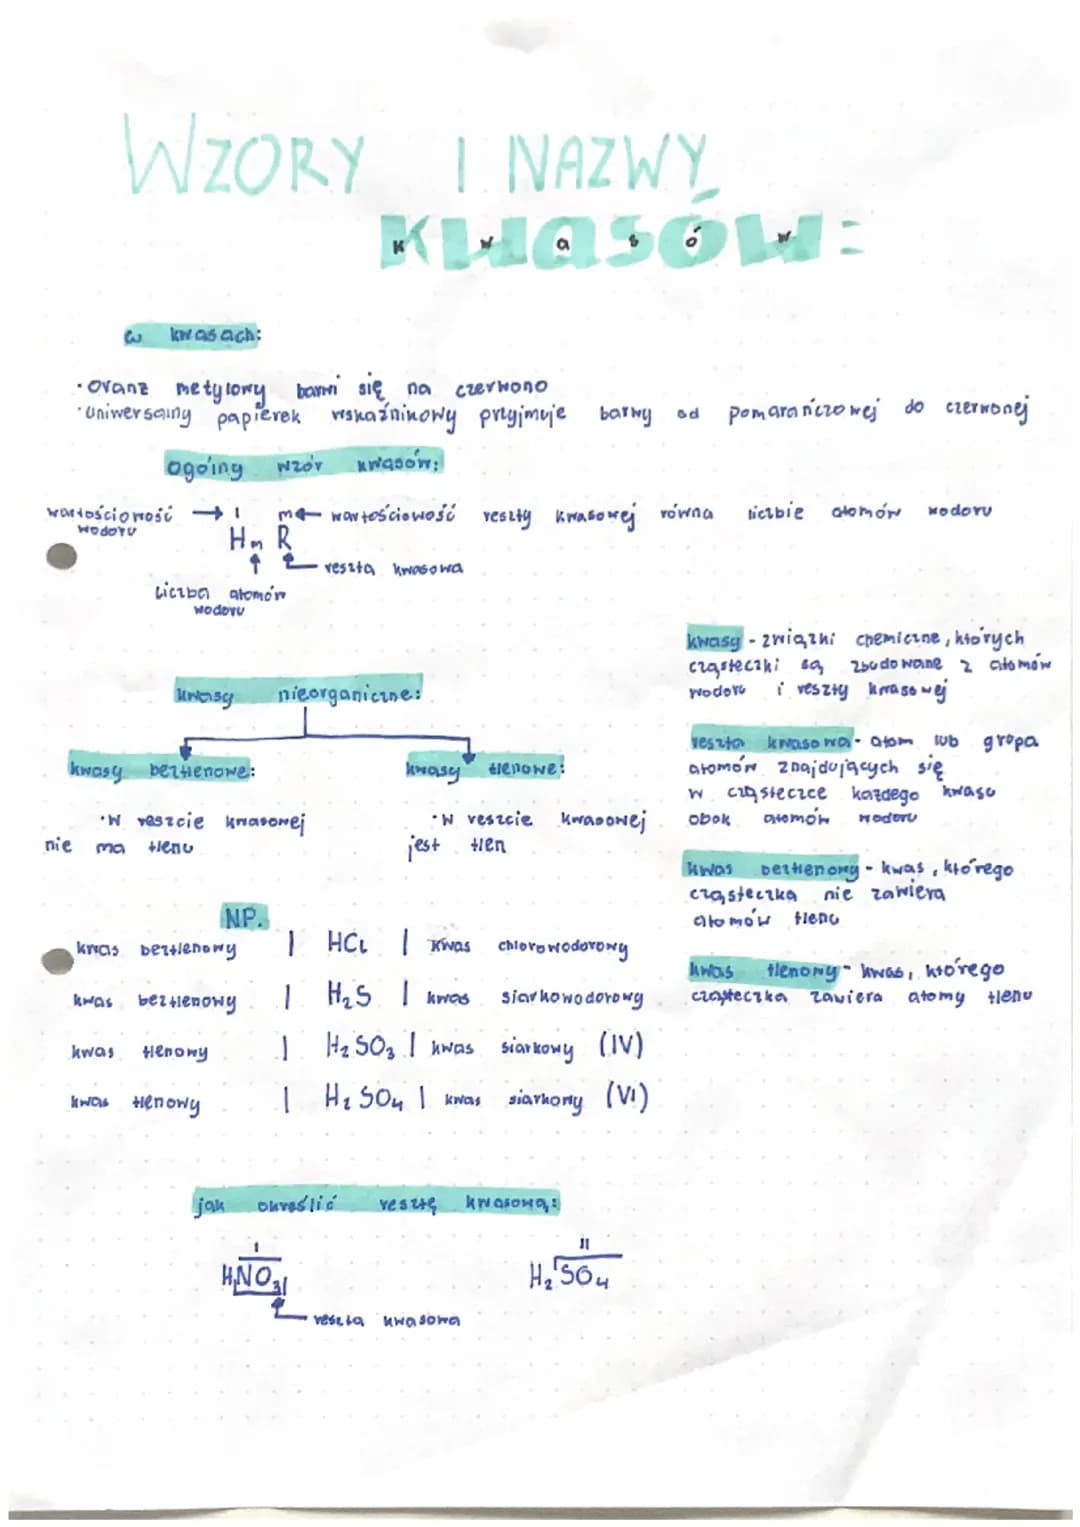 WZORY I NAZWY
KWASÓW:
w kwasach:
·oranż metylowy barwi się na czerwono
·uniwersalny papierek wskaźnikowy przyjmuje barwy od pomarańczowej do czerwonej
ogólny wzór kwasów:
wartościowość → I m ← wartościowość reszty kwasowej równa liczbie atomów wodoru
wodoru
Hm R
reszta kwasowa
liczba atomów
wodoru
kwasy nieorganiczne:
kwasy beztlenowe:
·W reszcie kwasowej
nie ma tlenu
kwasy tlenowe:
·W reszcie kwasowej
jest tlen
kwasy - związki chemiczne, których
cząsteczki są zbudowane z atomów
wodoru i reszty kwasowej
reszta kwasowa - atom lub grupa
atomów znajdujących się
w cząsteczce każdego kwasu
obok atomów wodoru
kwas beztlenowy - kwas, którego
cząsteczka nie zawiera
atomów tlenu
kwas tlenowy - kwas, którego
cząsteczka zawiera atomy tlenu
NP.
kwas beztlenowy | HCl | kwas chlorowodorowy
kwas beztlenowy | H₂S | kwas siarkowodorowy
kwas tlenowy | H₂SO₃ | kwas siarkowy (IV)
kwas tlenowy | H₂SO₄ | kwas siarkowy (VI)
jak określić resztę kwasową:
I
HNO₃
reszta kwasowa
II
H₂SO₄